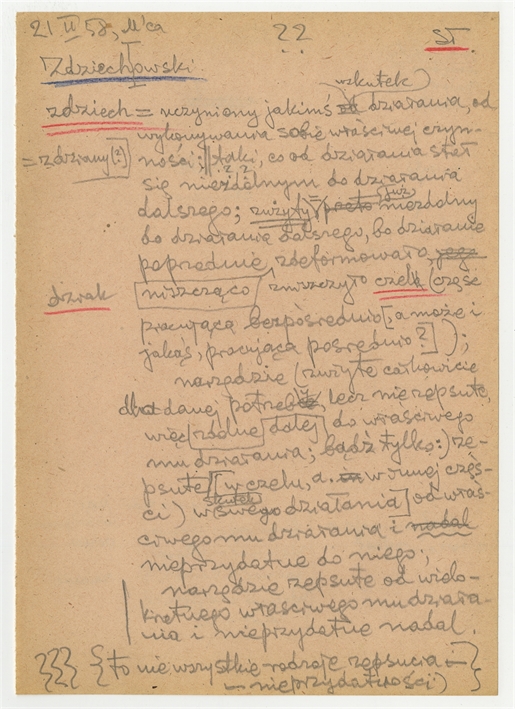 21 II 58, M'ca
22
ST
Zdziechowski
wskutek
zdziech = uczyniony jakimś od działania, od
wykonywania sobie właściwej czyn-
= zdziany [?] ności; taki, co od działania stał
się niezdolnym do działania
już
dalszego; zużyty = przeto niezdolny
do działania dalszego, bo działanie
poprzednie zdeformowało,
niszcząco zniszczyło czelk (część
dziak
pracującą bezpośrednio [, a może i
jakąś, pracującą pośrednio?] );
narzędzie (zużyte całkowicie
dla danej potrzeby, lecz nie zepsute,
więc zdolne dalej do właściwego
mu działania; bądź tylko:) ze-
psute [w czelu, a. w innej częś-
skutek
ci) w swego działania] od właś-
ciwego mu działania i nadal
nieprzydatne do niego;
narzędzie zepsute od wielo-
krotnego właściwego mu działa-
nia i nieprzydatne nadal.
}}} { (to nie wszystkie rodzaje zepsucia —
— nieprzydatności) }